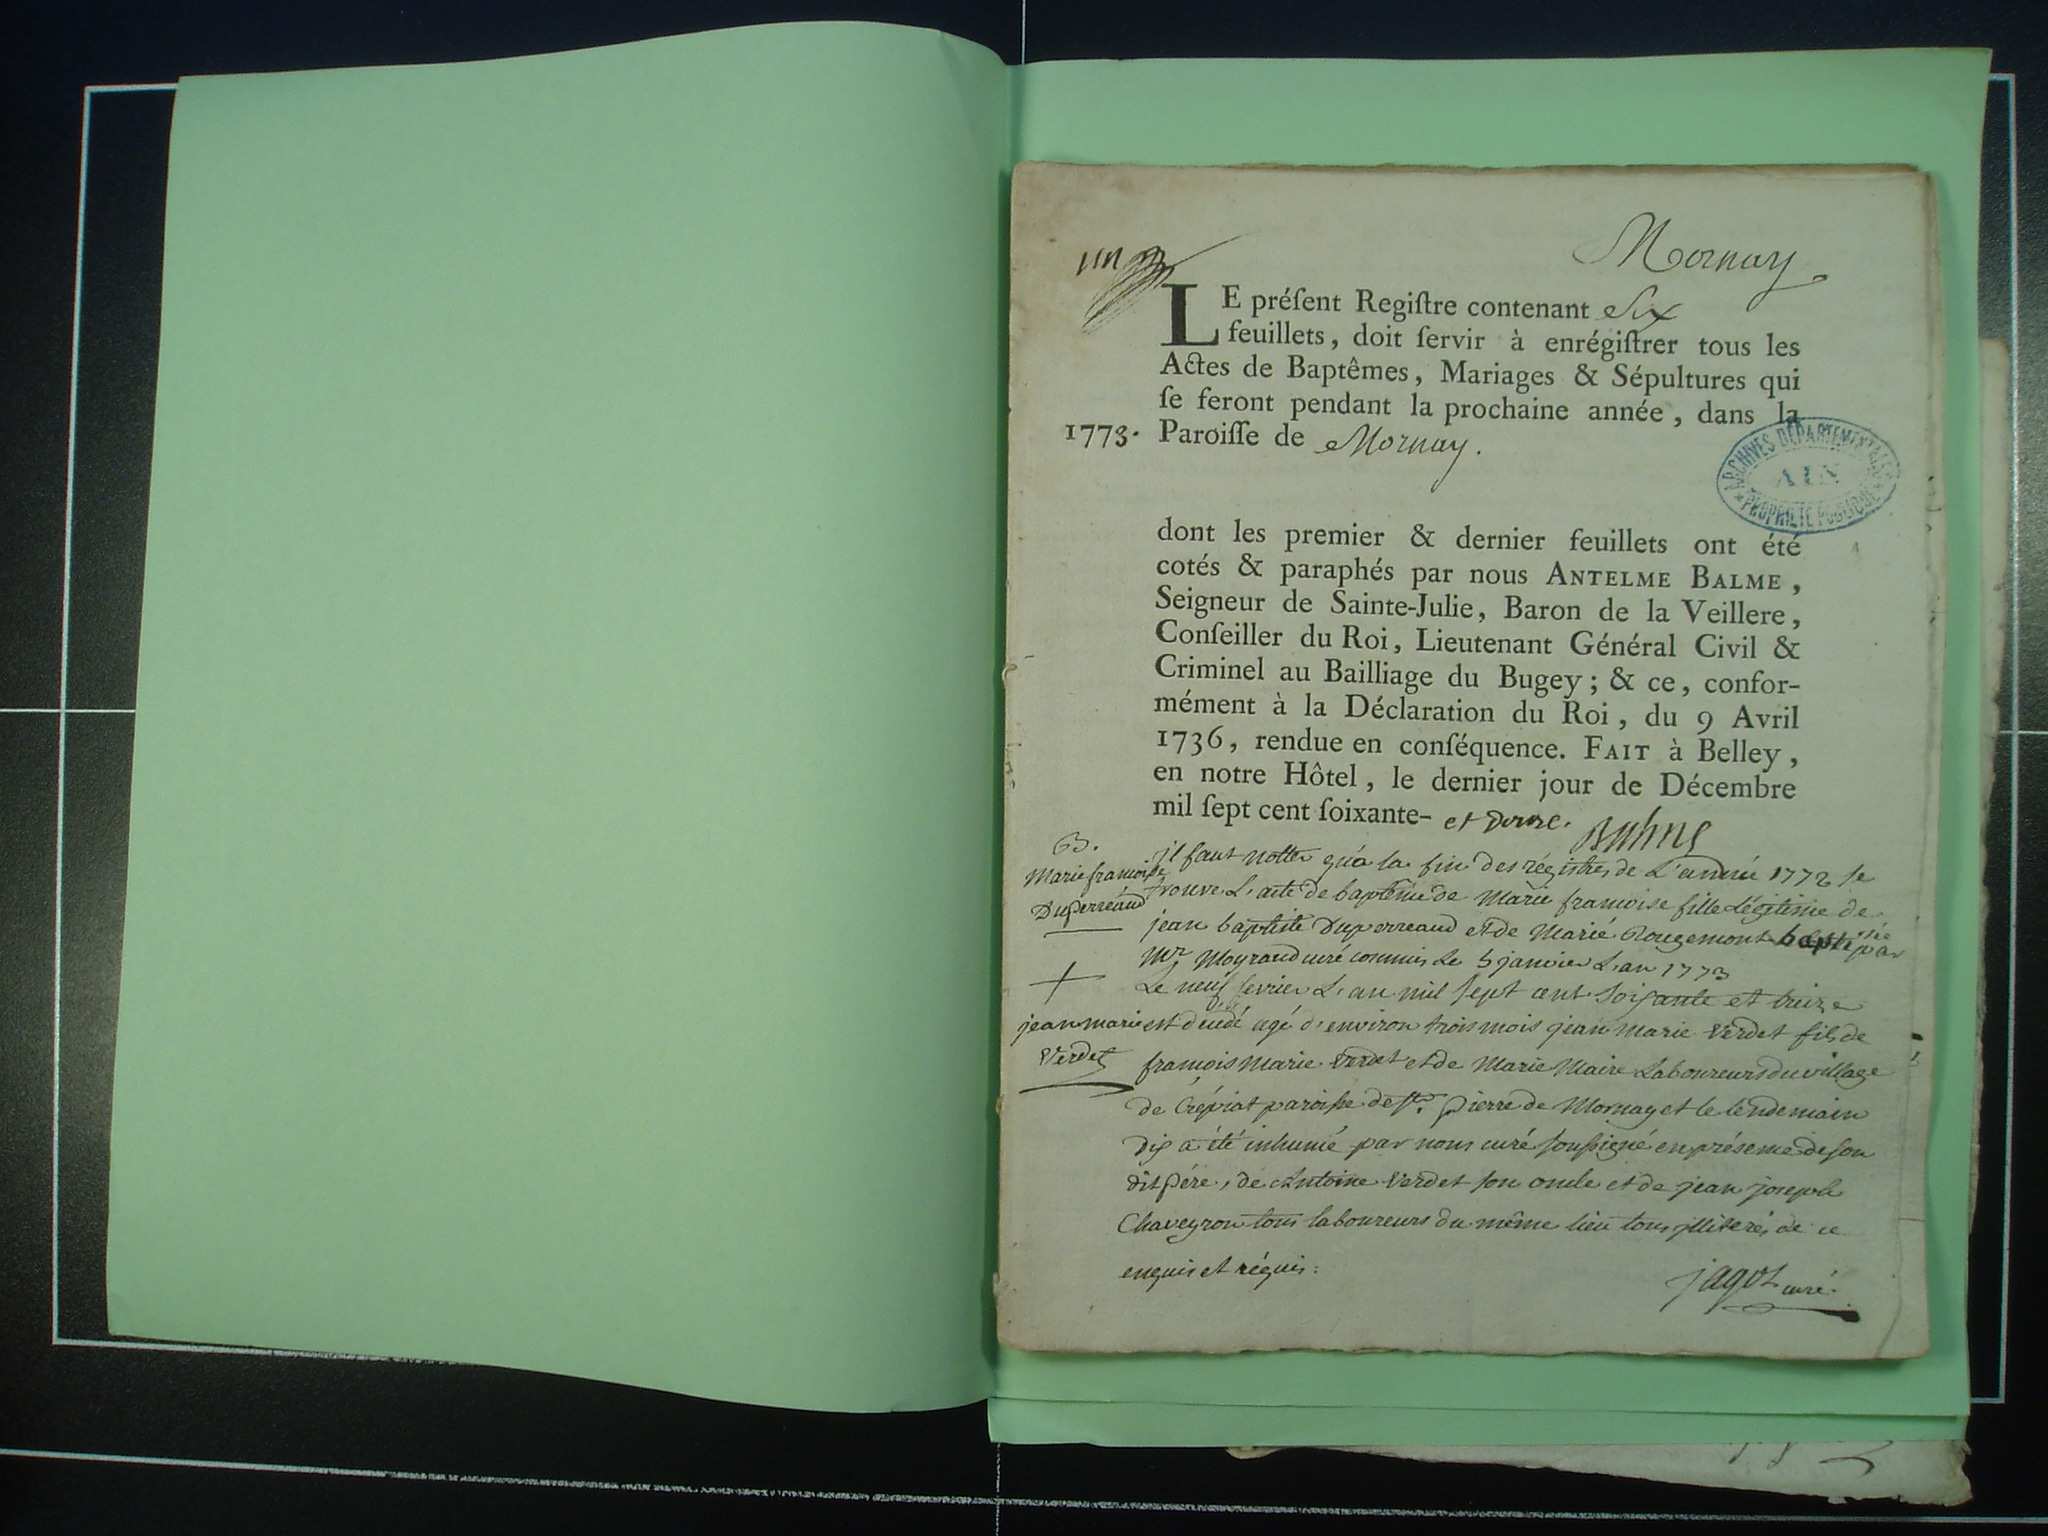 Mornay
LE préſent Regiſtre contenant Six
feuillets, doit ſervir à enrégiſtrer tous les
Actes de Baptêmes, Mariages & Sépultures qui
ſe feront pendant la prochaine année, dans la
1773. Paroiſſe de Mornay.
ARCHIVES DÉPARTEMENTALES
AIN
PROPRIÉTÉ PUBLIQUE
dont les premier & dernier feuillets ont été
cotés & paraphés par nous ANTELME BALME,
Seigneur de Sainte-Julie, Baron de la Veillere,
Conſeiller du Roi, Lieutenant Général Civil &
Criminel au Bailliage du Bugey; & ce, confor-
mément à la Déclaration du Roi, du 9 Avril
1736, rendue en conſéquence. FAIT à Belley,
en notre Hôtel, le dernier jour de Décembre
mil ſept cent ſoixante- et douze.
B.
Marie francoise
Duperreaud
il faut notter qu'a la fin des régistres de L'année 1772 se
trouve L'acte de baptême de Marie francoise fille Légitime de
jean baptiste Duperreaud et de Marie Rougemont baptisée par
Mr. Moyraud curé commis le 5 janvier L'an 1773
jean marie
Verdet
Le neuf fevrier L'an mil sept cent soixante et treize
est décédé agé d'environ trois mois jean Marie Verdet fils de
francois Marie Verdet et de Marie Maire Laboureurs du village
de Crépiat paroisse de st. pierre de Mornay et le lendemain
dix a été inhumé par nous curé soussigné en présence de son
dit pére, de Antoine Verdet son oncle et de jean joseph
Chaveyron tous laboureurs du même lieu tous illiterés de ce
enquis et réquis:
jagot curé.